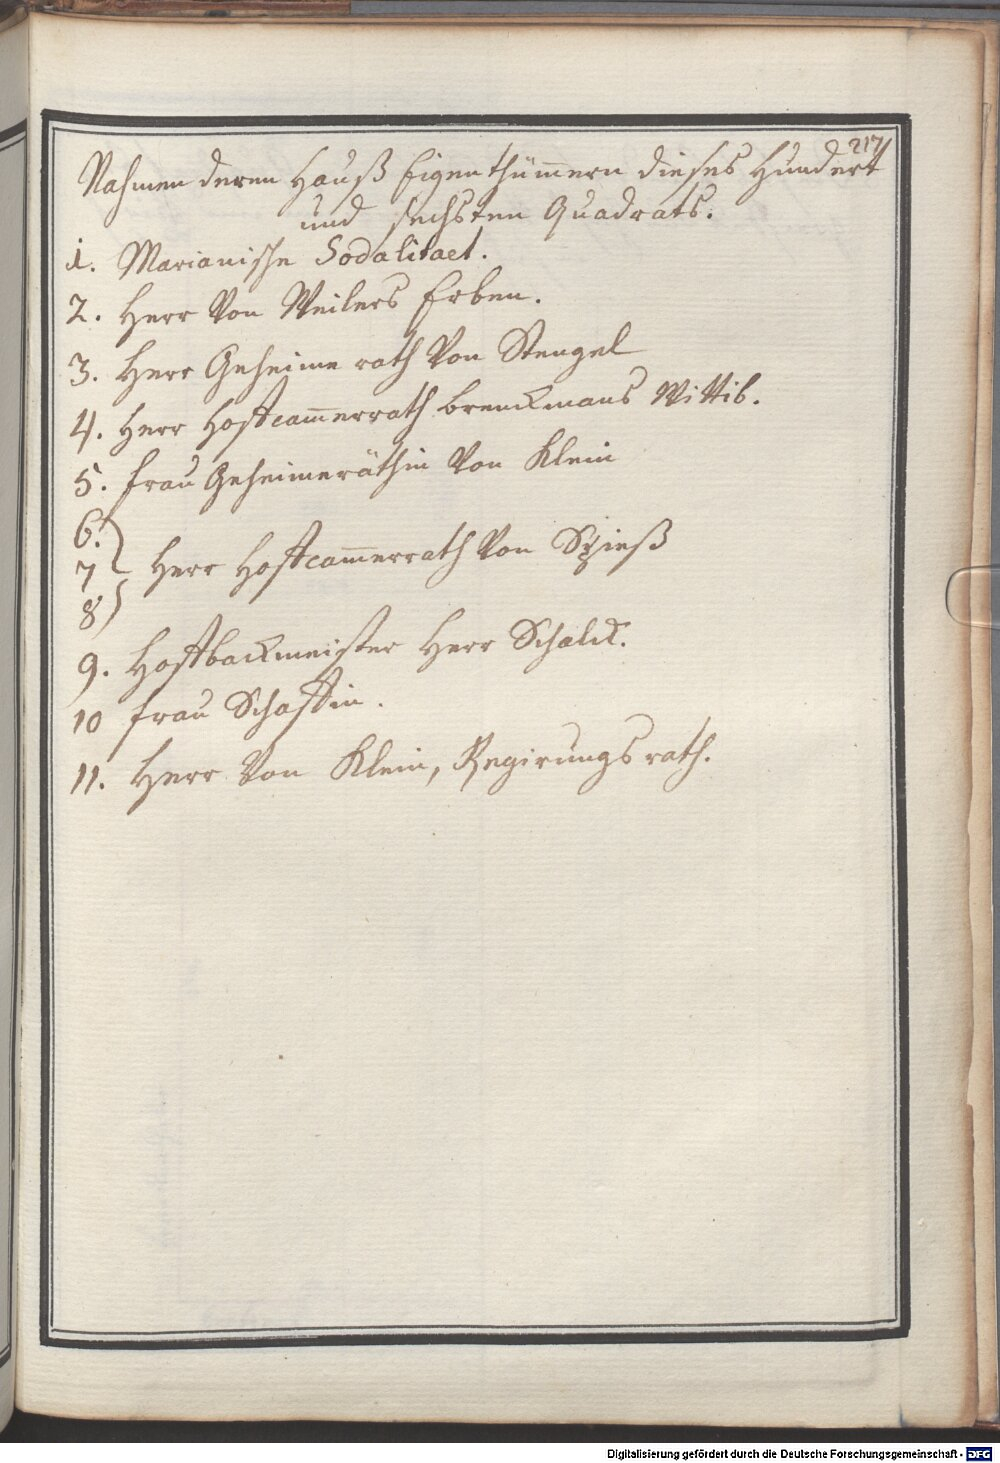 217
Nahmen deren Hauß Eigenthüm̄ern dieses Hundert
und sechsten Quadrats.
1. Marianische Sodalitaet.
2. Herr Von Weilers Erben.
3. Herr Geheime rath Von Stengel
4. Herr Hoffcam̄errath brenckmans Wittib.
5. frau Geheimeräthin Von Klein
6.
7 Herr Hoffcam̄errath Von Spieß
8
9. Hoffbackmeister Herr Schalck.
10 frau Schaffin.
11. Herr Von Klein, Regirungs rath.
Digitalisierung gefördert durch die Deutsche Forschungsgemeinschaft - DFG